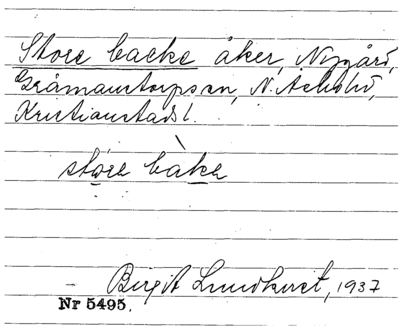 Store backe åker, Nygård,
Gråmanstorps sn, N. Åsbo hd,
Kristianstads l.
stóre bàke
– Birgit Lundkvist, 1937
Nr 5495.